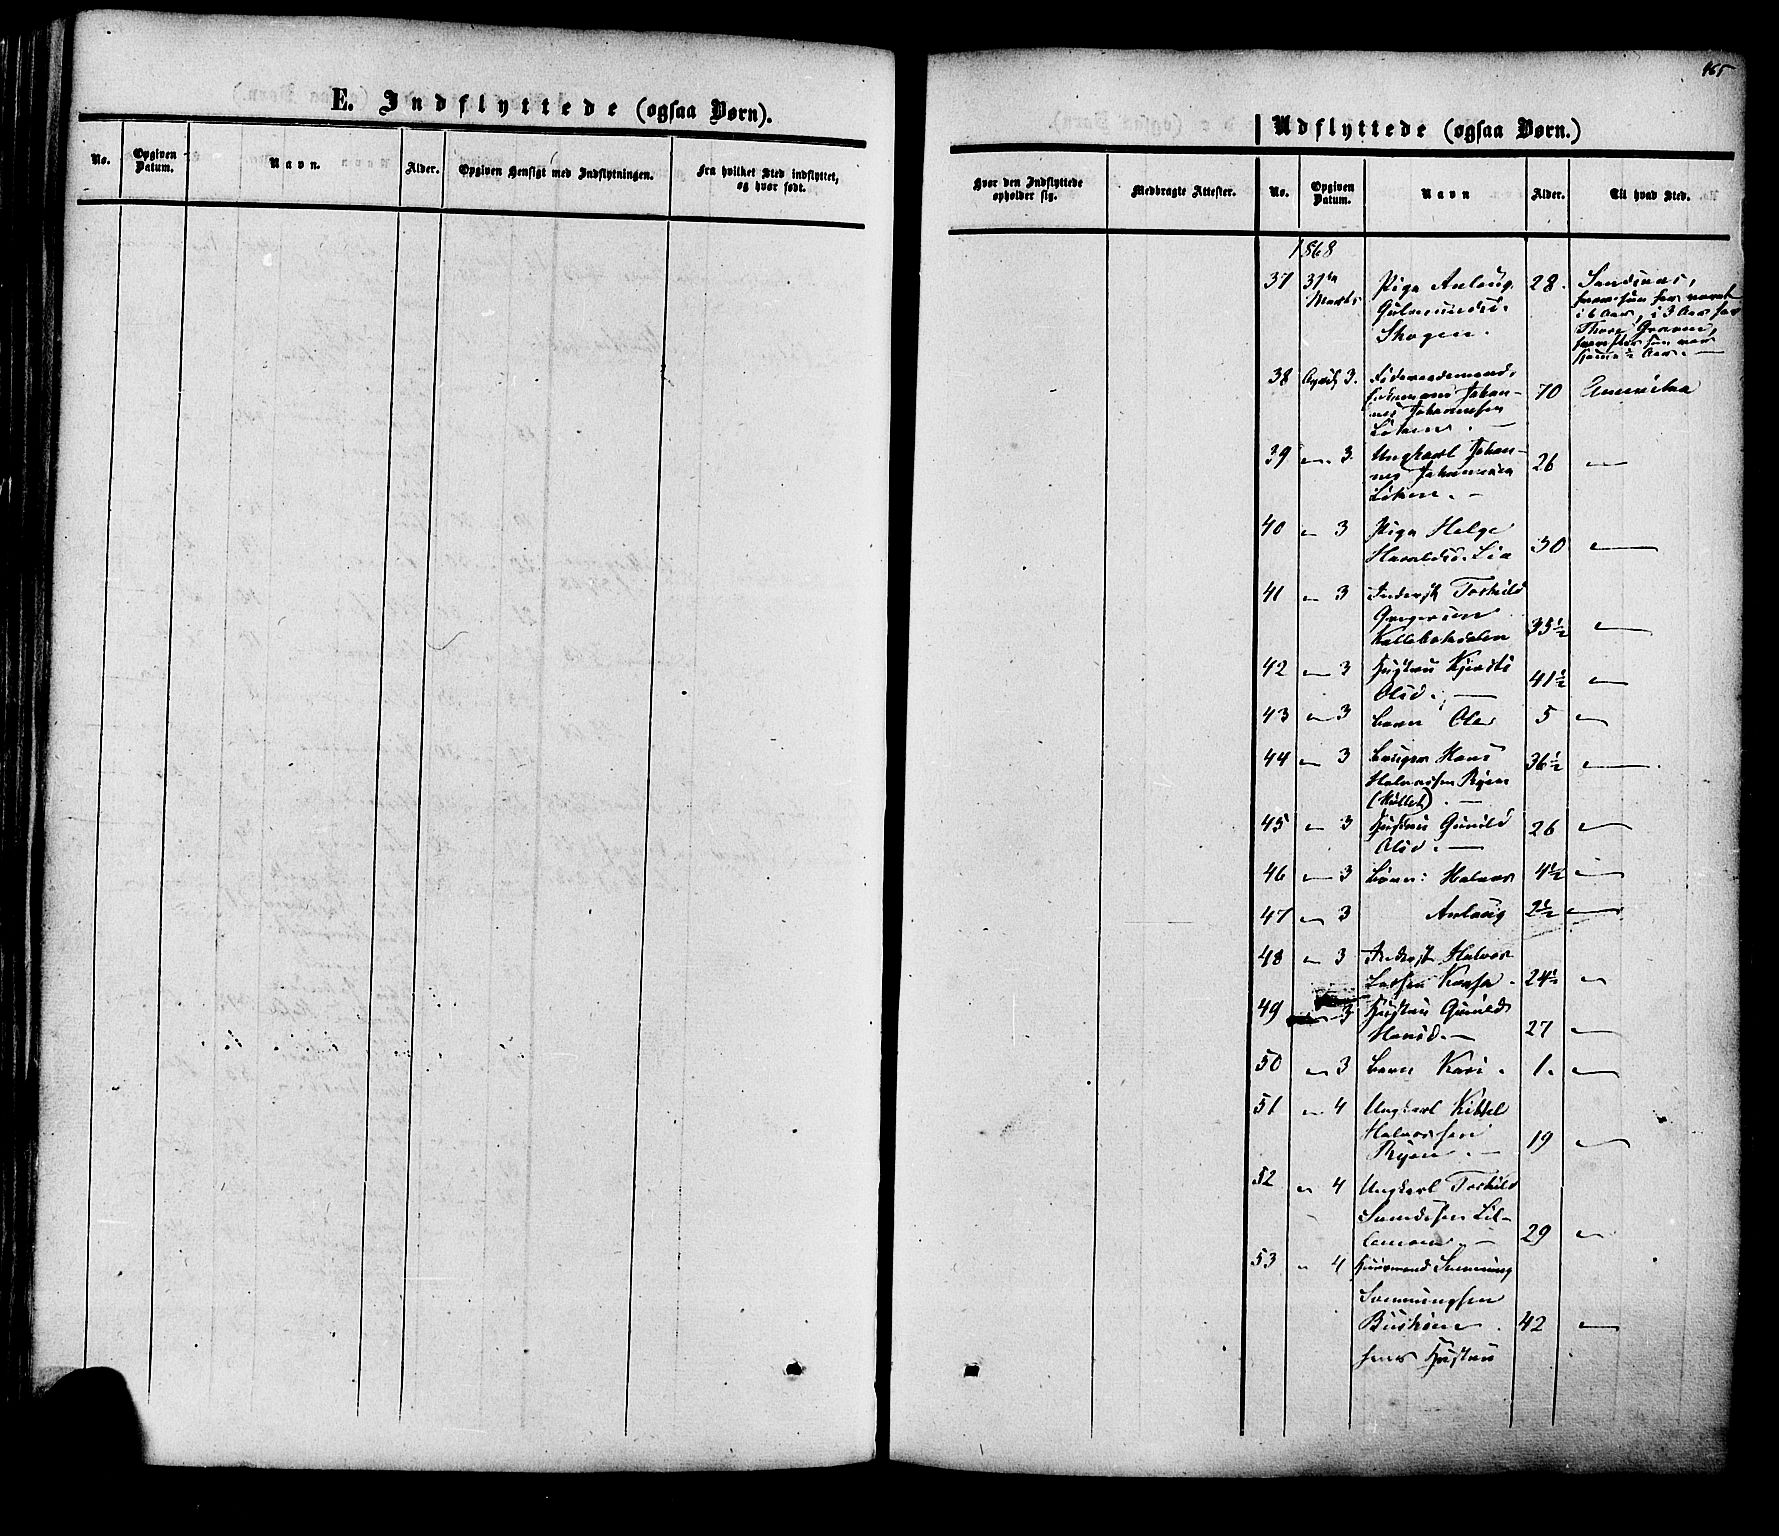 E. Indflyttede (ogsaa Børn).
No. Opgiven Datum. Navn. Alder. Opgiven Hensigt med Indflytningen. Fra hvilket Sted indflyttet, og hvor født.
465
Udflyttede (ogsaa Børn.)
Hvor den Indflyttede opholder sig. Medbragte Attester. No. Opgiven Datum. Navn Alder. Til hvad Sted.
1868
37 31te Marts Pige Anlaug 28.
Skogen.
38 April 3. Johan-
nes Johannesen 70 Amerika
39 " 3. Ungkarl Johan-
nes Johannesen 26 "
40 " 3 Pige Helge
Haraldsd. Lia 30 "
41 " 3 Inderst Torkild
Gregersen
35½ "
42 " 3 Hustru Kjersti
Olsd. 41½ "
43 " 3 Barn Ole 5 "
44 " 3 Bruger Hans
Halvorsen Ryen 36½ "
45 " 3 Hustru Gunild
Olsd. 26 "
46 " 3 Børn: Halvor 4½ "
47 " 3 Anlaug 2½ "
48 " 3 Inderst Halvor
Larsen 24½ "
49 " 3 Hustru Gunild
Hansd. 27 "
50 " 3 Barn Kari. 1. "
51 " 4 Ungkarl Kittel
Halvorsen
Ryen. 19 "
52 " 4 Ungkarl Torkild
29 "
53 " 4 Huusmand
42 "
hans Hustru